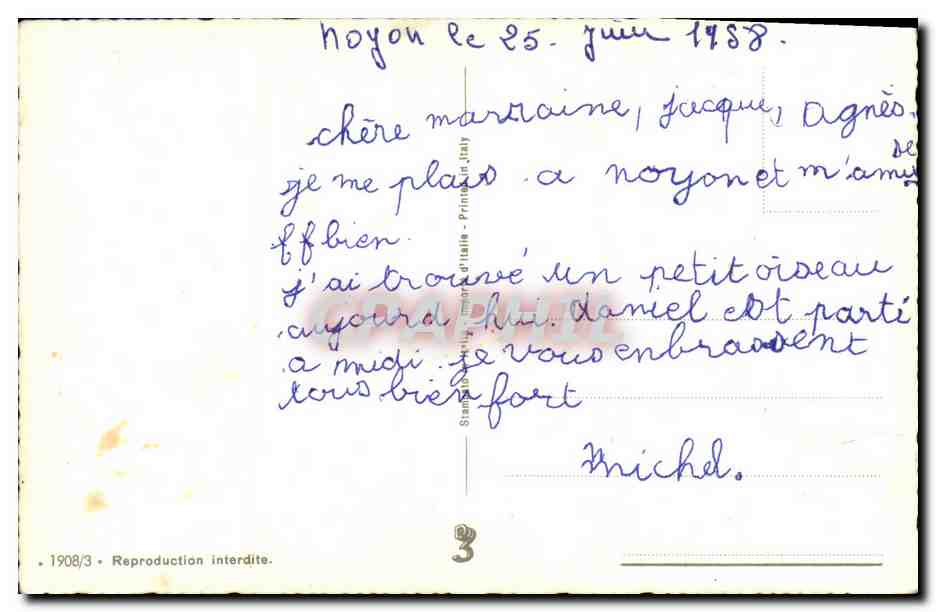 noyon le 25. juin 1958.
chère marraine, jacque, Agnès.
je me plais a noyon et m'amu
se
ff bien.
j'ai trouvé un petit oiseau
aujourd hui. daniel est parti
a midi. je vous enbrassent
tous bien fort
Michel.
Stampato in Italia - Importé d'Italie - Printed in Italy
CPAPHIL
3
• 1908/3 • Reproduction interdite.